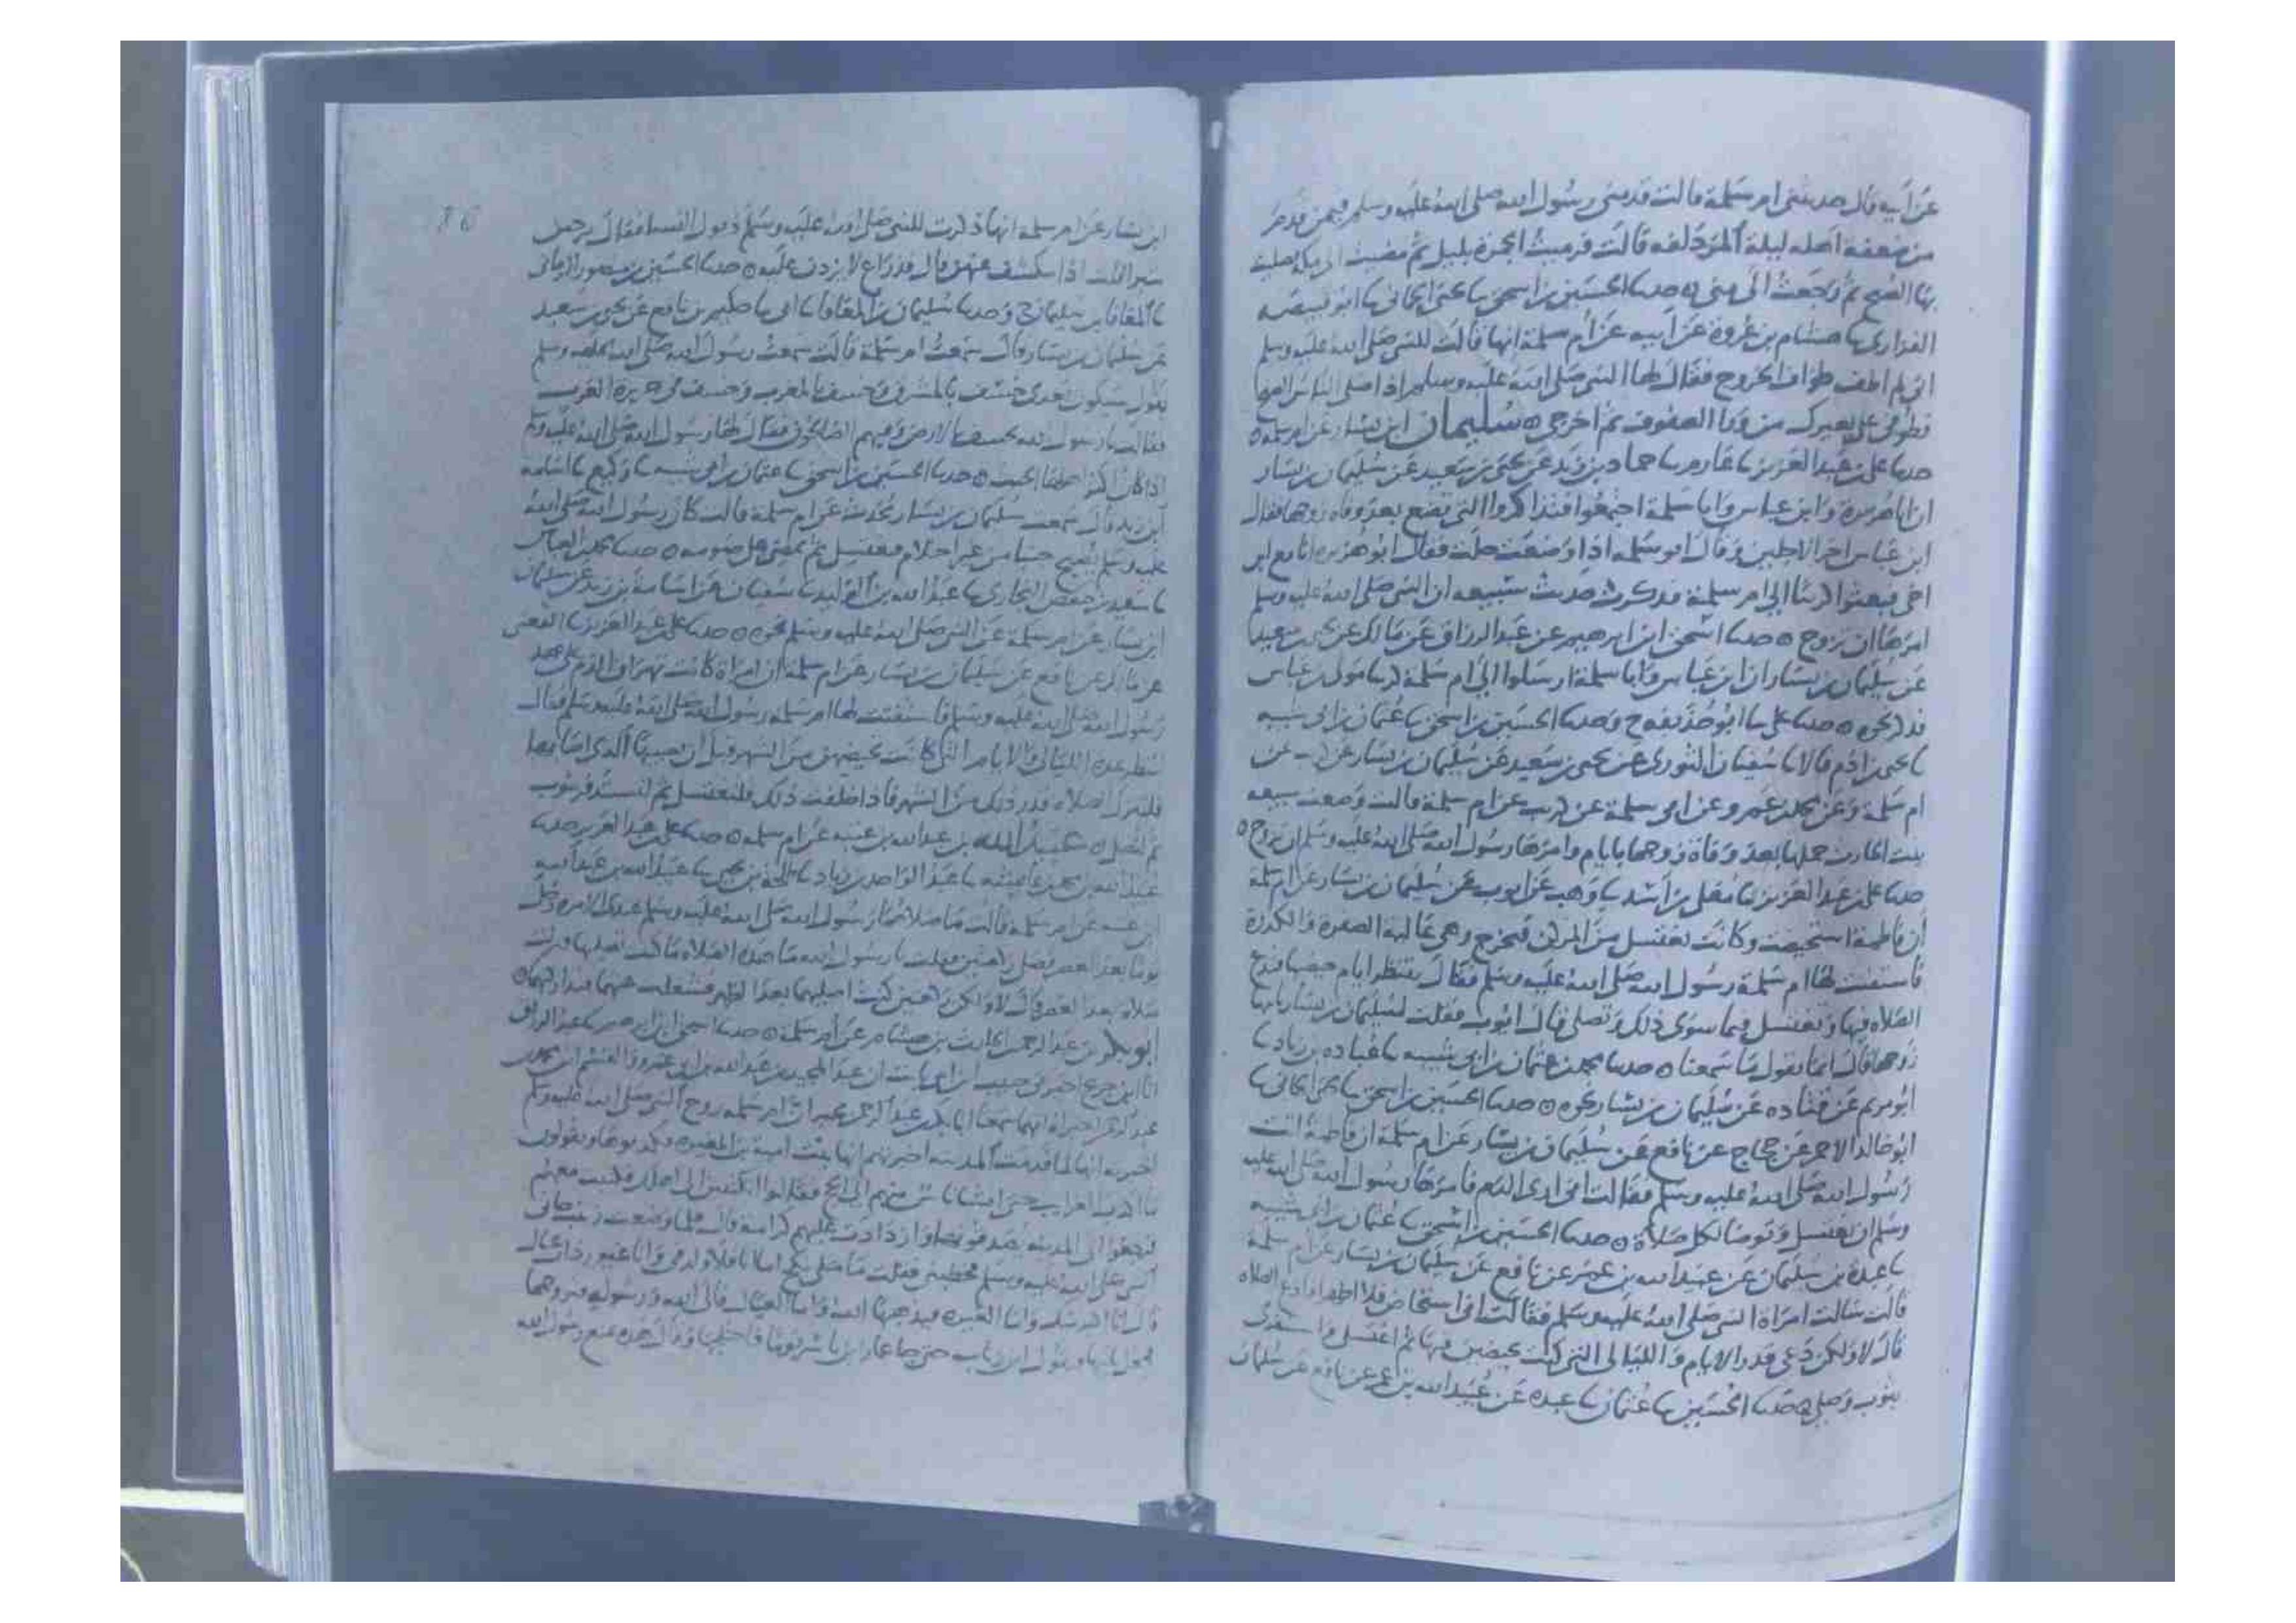 عن أبيه قال حدثتني ام سلمة قالت قدمني رسول الله صلى الله عليه وسلم فيمن قدم
من ضعفه اهله ليلة المزدلفه قالت فرميت الجمرة بليل ثم مضيت الى مكة فصليت
بها الصبح ثم رجعت الى منى ه حدثنا الحسين بن اسحق نا يحيى الحماني نا ابو
الفزاري نا هشام بن عروة عن ابيه عن ام سلمة انها قالت للنبي صلى الله عليه وسلم
اني لم اطف طواف الخروج فقال لها النبي صلى الله عليه وسلم اذا صلى الناس الصبح
فطوفي على بعيرك من ورا الصفوف ثم اخرجي ه سليمان ابن يسار عن ام سلمة ه
حدثنا علي بن عبد العزيز نا عارم نا حماد بن زيد عن يحيى بن سعيد عن سليمان بن يسار
ان ابا هريرة وابن عباس وابا سلمة اجتمعوا فتذاكروا التي تضع بعد وفاة زوجها فقال
ابن عباس اخر الاجلين وقال ابو سلمه اذا وضعت حلت فقال ابو هريره انا مع ابن
اخي فبعثوا كريبا الى ام سلمة فذكرت حديث سبيعه ان النبي صلى الله عليه وسلم
امرها ان تزوج ه حدثنا اسحق ابن ابرهيم عن عبد الرزاق عن مالك عن يحيى بن سعيد
عن سليمان بن يسار ان ابن عباس وابا سلمة ارسلوا الى ام سلمة كريبا مولى بن عباس
فذكر نحوه ه حدثنا علي نا ابو حذيفه ح وحدثنا الحسين بن اسحق نا عثمان بن ابي شيبه
نا يحيى بن ادم قالا نا سفيان الثوري عن يحيى بن سعيد عن سليمان بن يسار عن كريب عن
ام سلمة وعن محمد بن عمرو عن ابي سلمة عن كريب عن ام سلمة قالت وضعت سبيعه
بنت الحارث حملها بعد وفاة زوجها بايام وامرها رسول الله صلى الله عليه وسلم ان تزوج ه
حدثنا علي بن عبد العزيز نا معلى بن اسد نا وهيب عن ايوب عن سليمان بن يسار عن ام سلمة
ان فاطمة استحيضت وكانت تغتسل من المركن فتخرج وهي غالبة الصفرة والكدرة
فاستفتت لها ام سلمة رسول الله صلى الله عليه وسلم فقال تنتظر ايام حيضها فتدع
الصلاه فيها وتغتسل فيما سوى ذلك وتصلي قال ايوب فقلت لسليمان بن يسار
زوجها قال انما نقول ما سمعنا ه حدثنا محمد بن عثمان بن ابي شيبه نا عباده بن زياد نا
ابو مريم عن قتاده عن سليمان بن يسار نحوه ه حدثنا الحسين بن اسحق نا يحيى الحماني نا
ابو خالد الاحمر عن حجاج عن نافع عن سليمان بن يسار عن ام سلمة ان فاطمة اتت
رسول الله صلى الله عليه وسلم فقالت اني ارى الدم فامرها رسول الله صلى الله عليه
وسلم ان تغتسل وتوضا لكل صلاة ه حدثنا الحسين بن اسحق نا عثمان بن ابي شيبه
نا عبدة بن سليمان عن عبيد الله بن عمر عن نافع عن سليمان بن يسار عن ام سلمة
قالت سالت امراة النبي صلى الله عليه وسلم فقالت اني استحاض فلا اطهر افادع الصلاه
قال لا ولكن دعي قدر الايام والليالي التي كنت تحيضين فيها ثم اغتسلي واستثفري
بثوب وصلي ه حدثنا الحسين نا عثمان نا عبده عن عبيد الله بن عمر عن نافع عن سليمان
ابن يسار عن ام سلمة انها ذكرت للنبي صلى الله عليه وسلم ذيول النسا فقال يرخين
شبرا قلت اذا تنكشف عنهن قال فذراع لا يزدن عليه ه حدثنا الحسين بن منصور الرماني
نا المعافا بن سليمان ح وحدثنا سليمان بن المعافا نا ابي نا حكيم بن نافع عن يحيى بن سعيد
عن سليمان بن يسار قال سمعت ام سلمة قالت سمعت رسول الله صلى الله عليه وسلم
يقول سيكون بعدي خسف بالمشرق وخسف بالمغرب وخسف في جزيرة العرب
فقالت يا رسول الله يخسف بالارض وفيهم الصالحون فقال لها رسول الله صلى الله عليه وسلم
اذا كان اكثر اهلها الخبث ه حدثنا الحسين بن اسحق نا عثمان بن ابي شيبه نا وكيع نا اسامة
ابن زيد قال سمعت سليمان بن يسار يحدث عن ام سلمة قالت كان رسول الله صلى الله
عليه وسلم يصبح جنبا من غير احتلام فيغتسل ثم يمضي على صومه ه حدثنا محمد بن العباس
نا سعيد بن حفص البخاري نا عبد الله بن الوليد نا سفيان عن اسامة بن زيد عن سليمان
ابن يسار عن ام سلمة عن النبي صلى الله عليه وسلم نحوه ه حدثنا علي بن عبد العزيز نا القعنبي
عن مالك عن نافع عن سليمان بن يسار عن ام سلمة ان امراة كانت تهراق الدم على عهد
رسول الله صلى الله عليه وسلم فاستفتت لها ام سلمه رسول الله صلى الله عليه وسلم فقال
لتنظر عدة الليالي والايام التي كانت تحيضهن من الشهر قبل ان يصيبها الذي اصابها
فلتترك الصلاه قدر ذلك من الشهر فاذا خلفت ذلك فلتغتسل ثم لتستثفر بثوب
ثم لتصل ه عبيد الله بن عبد الله بن عتبه عن ام سلمه ه حدثنا علي بن عبد العزيز حدثنا
عبيد الله بن محمد بن عايشه نا عبد الواحد بن زياد نا طلحة بن يحيى نا عبيد الله بن عبد الله
ابن عتبه عن ام سلمة قالت ما صلاهما رسول الله صلى الله عليه وسلم عندي الا مرة دخل
يوما بعد العصر فصلى ركعتين فقلت يا رسول الله ما هذه الصلاه ما كنت تصليها
صلاه بعد العصر قال لا ولكن ركعتين كنت اصليهما بعد الظهر فشغلت عنهما
ابو بكر بن عبد الرحمن الحارث بن هشام عن ام سلمة ه حدثنا اسحق ابن ابرهيم نا عبد الرزاق
انا ابن جريج اخبرني حبيب بن ابي ثابت ان عبد الحميد بن عبد الله بن ابي عمرو والقسم ابن محمد بن
عبد الرحمن اخبراه انهما سمعا ابا بكر بن عبد الرحمن يخبر ان ام سلمه زوج النبي صلى الله عليه وسلم
اخبرته انها لما قدمت المدينه اخبرتهم انها بنت ابي امية بن المغيره فكذبوها ويقولون
ما اكذب الغرايب حتى انشا ناس منهم الى الحج فقالوا اتكتبين الى اهلك فكتبت معهم
فرجعوا الى المدينه يصدقونها وازدادت عليهم كرامة قالت فلما وضعت زينب جاني
النبي صلى الله عليه وسلم فخطبني فقلت ما مثلي ينكح اما انا فلا ولد في وانا غيور ذات عيال
قال انا اكبر منك واما الغيره فيذهبها الله واما العيال فالى الله ورسوله فتزوجها
فجعل ياتيها ويقول اين زناب حتى جا عمار ابن ياسر يوما فاختلجها وقال هذه تمنع رسول الله